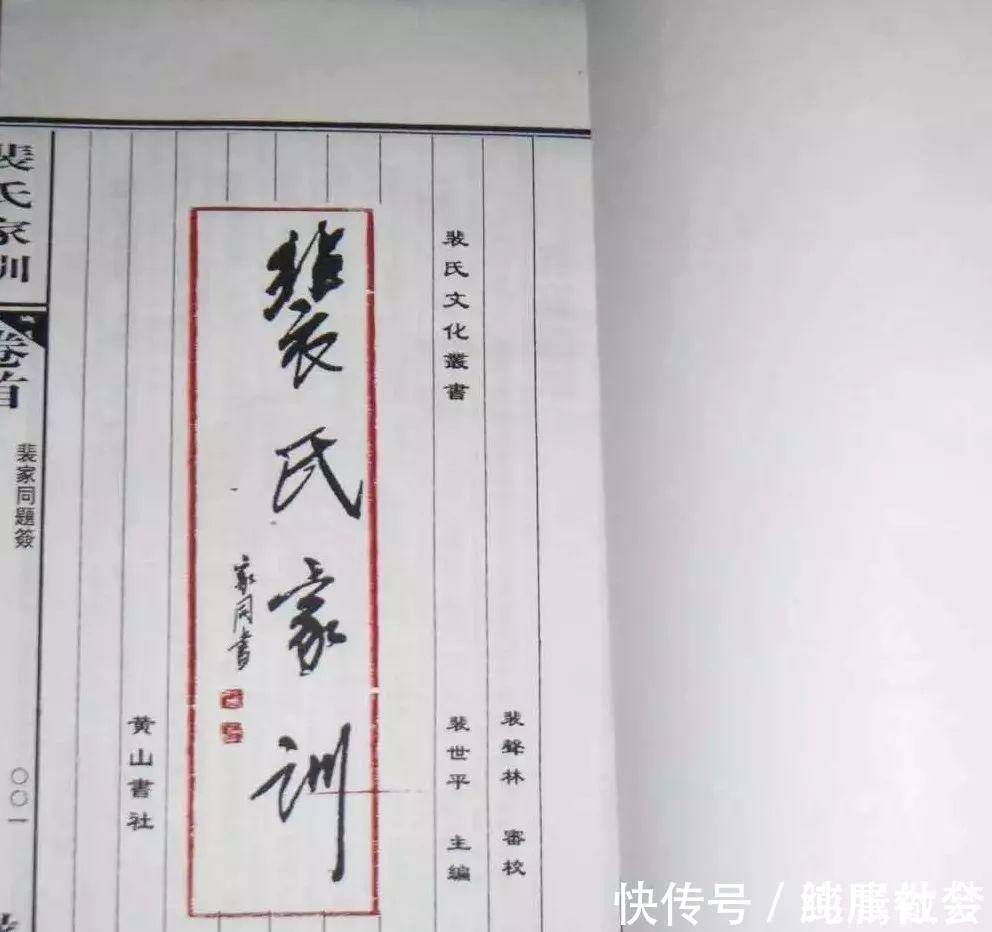 裴氏文化叢書
裴聲林 審校
裴世平 主編
裴氏家训
家同書
黄山書社
裴氏家训
卷首
裴家同題簽
〇〇一
快传号/